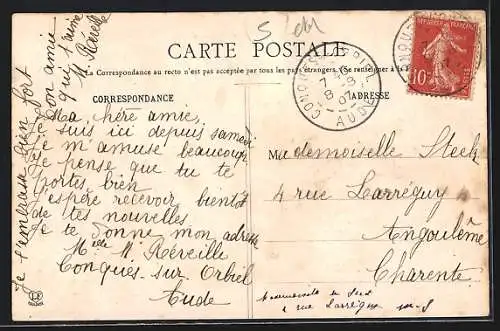 CARTE POSTALE
La Correspondance au recto n'est pas acceptée par tous les pays étrangers. (Se renseigner à la
CORRESPONDANCE
ADRESSE
CONQUES-SUR-ORBIEL
8
07
AUDE
10
Ma chère amie,
Je suis ici depuis samedi
Je m'amuse beaucoup
Je pense que tu te
portes bien
J'espère recevoir bientôt
de tes nouvelles
Je te donne mon adresse
Melle M. Réveille
Conques-sur-Orbiel
Aude
Je t'embrasse bien fort
Ton amie
qui t'aime
M. Réveille
Mademoiselle Steck
4 rue Larréguy
Angoulême
Charente
Mademoiselle
4 rue Larréguy